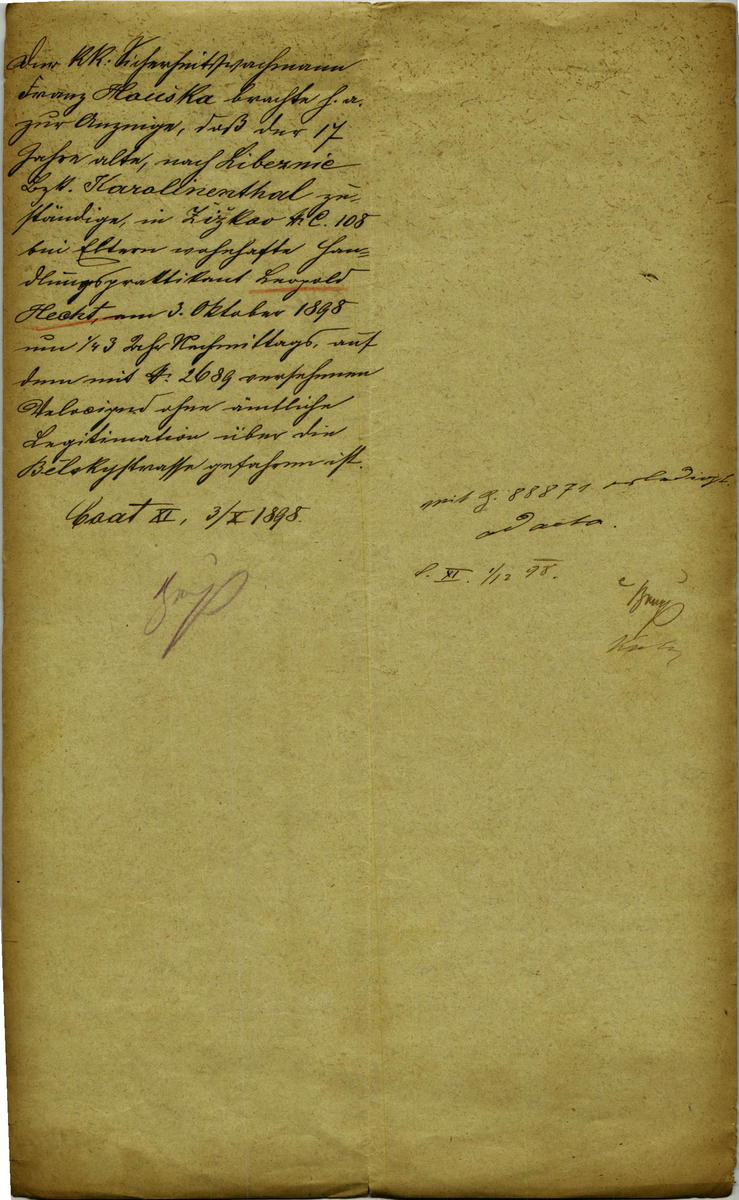 Der KK. Sicherheitswachmann
Franz Houška brachte h. a.
zur Anzeige, daß der 17
Jahre alte, nach Libeznic
Bzk. Karolinenthal zu-
ständige, in Žižkov N.C. 108
bei Eltern wohnhafte Han-
dlungspraktikant Leopold
Hecht, am 3. Oktober 1898
um 1/4 3 Uhr Nachmittags, auf
dem mit N: 2689 versehenen
Velociped ohne ämtliche
Legitimation über die
Bělskystrasse gefahren ist.
Coat XI, 3/X 1898.
mit Z. 88871 erledigt.
ad acta.
XI. 1/12 98.